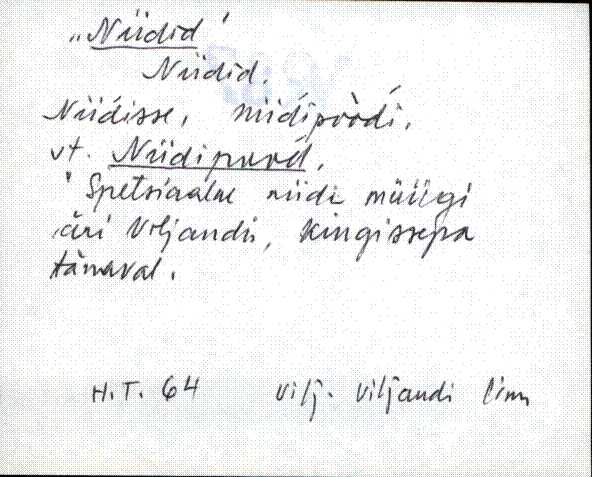 „Niidid"
Niidid.
Niidisse, niidipoodi.
vt. Niidipood.
Spetsiaalne niidi müügi
äri Viljandis, Kingissepa
tänaval.
H.T. 64 Vilj. Viljandi linn